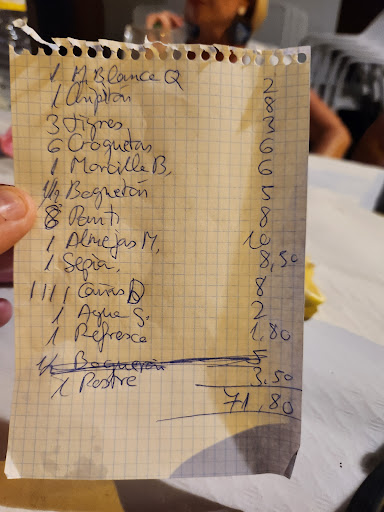 1 M. Blance Q 2
1 Chipirón 8
3 Tigres 3
6 Croquetas 6
1 Morcilla B, 6
1/2 Boquerón 5
8 Pant 8
1 Almejas M, 10
1 Sepia, 8,50
1111 Cañas D 8
1 Agua G. 2
1 Refresco 1,80
1/2 Boquerón 5
1 Postre 3,50
71,80